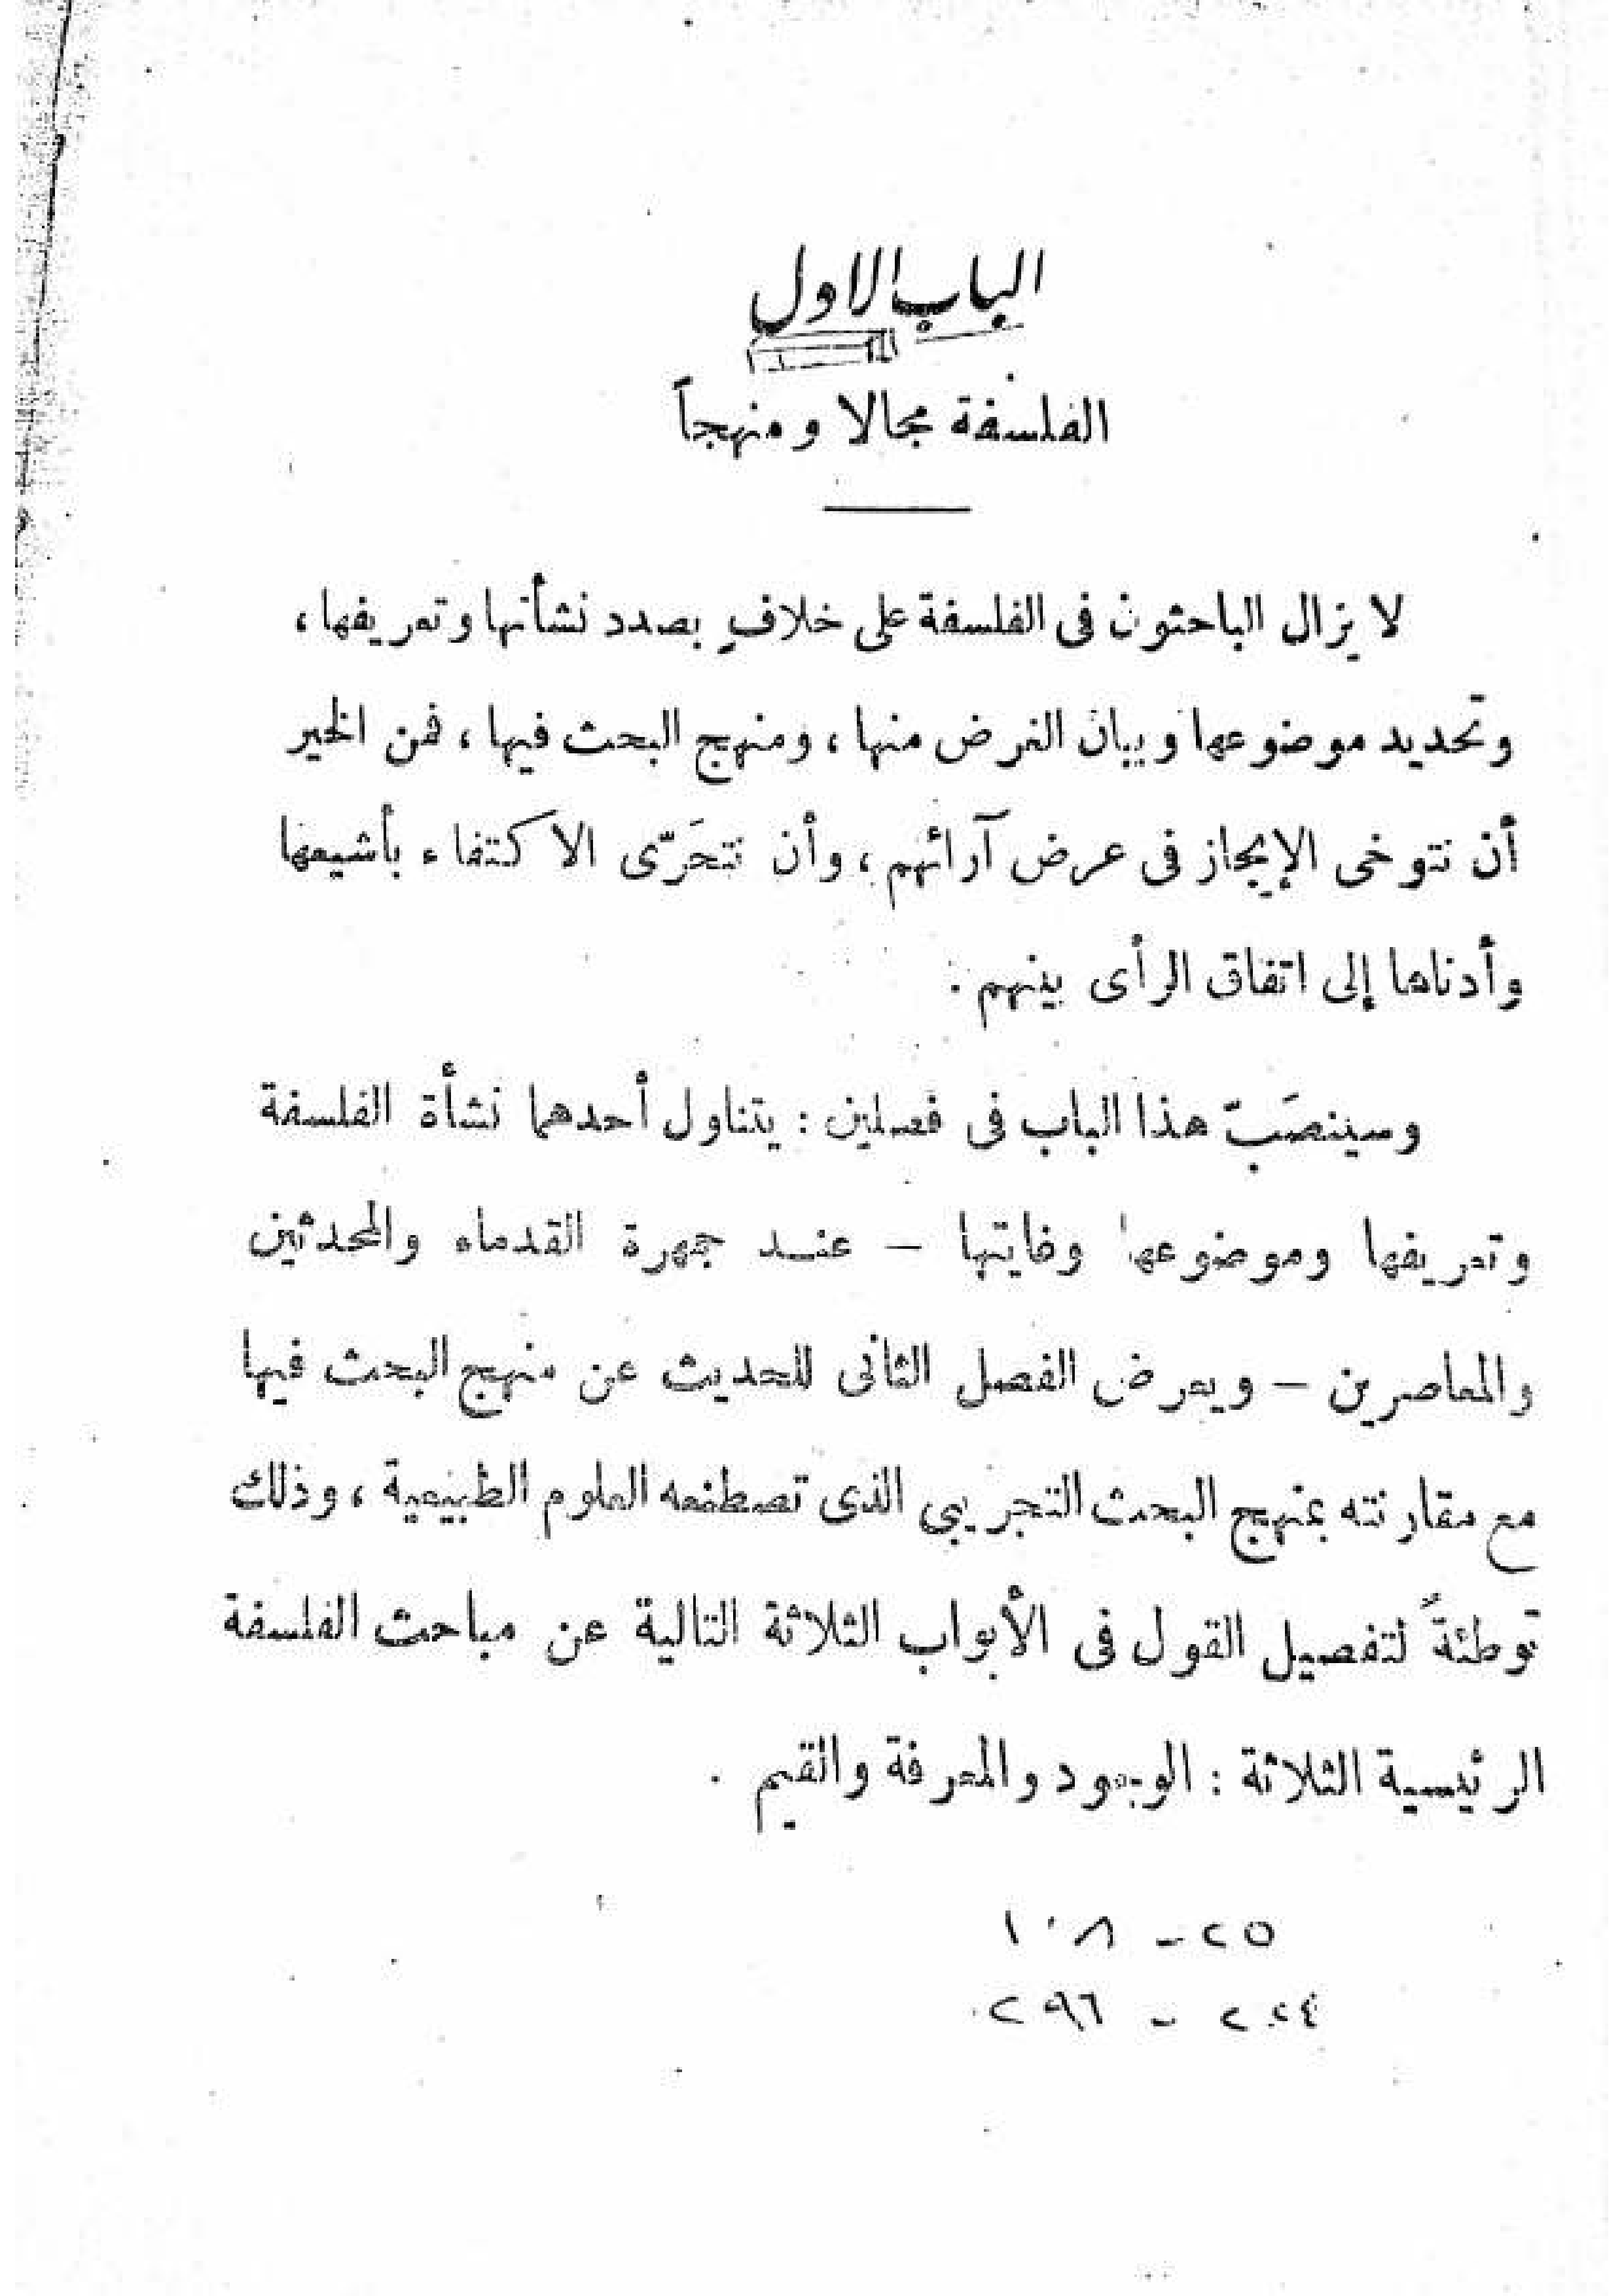 الباب الاول
الفلسفة مجالا ومنهجاً
لا يزال الباحثون فى الفلسفة على خلافٍ بصدد نشأتها وتعريفها ،
وتحديد موضوعها وبيان الغرض منها ، ومنهج البحث فيها ، فمن الخير
أن نتوخى الإيجاز فى عرض آرائهم ، وأن نتحَرّى الاكتفاء بأشيعها
وأدناها إلى اتفاق الرأى بينهم .
وسينصَبّ هذا الباب فى فصلين : يتناول أحدهما نشأة الفلسفة
وتعريفها وموضوعها وغايتها – عنـد جمهرة القدماء والمحدثين
والمعاصرين – ويعرض الفصل الثانى للحديث عن منهج البحث فيها
مع مقارنته بمنهج البحث التجريبى الذى تصطنعه العلوم الطبيعية ، وذلك
توطئةً لتفصيل القول فى الأبواب الثلاثة التالية عن مباحث الفلسفة
الرئيسية الثلاثة : الوجود والمعرفة والقيم .
٢٥ - ١٠٨
- ٢٩٦